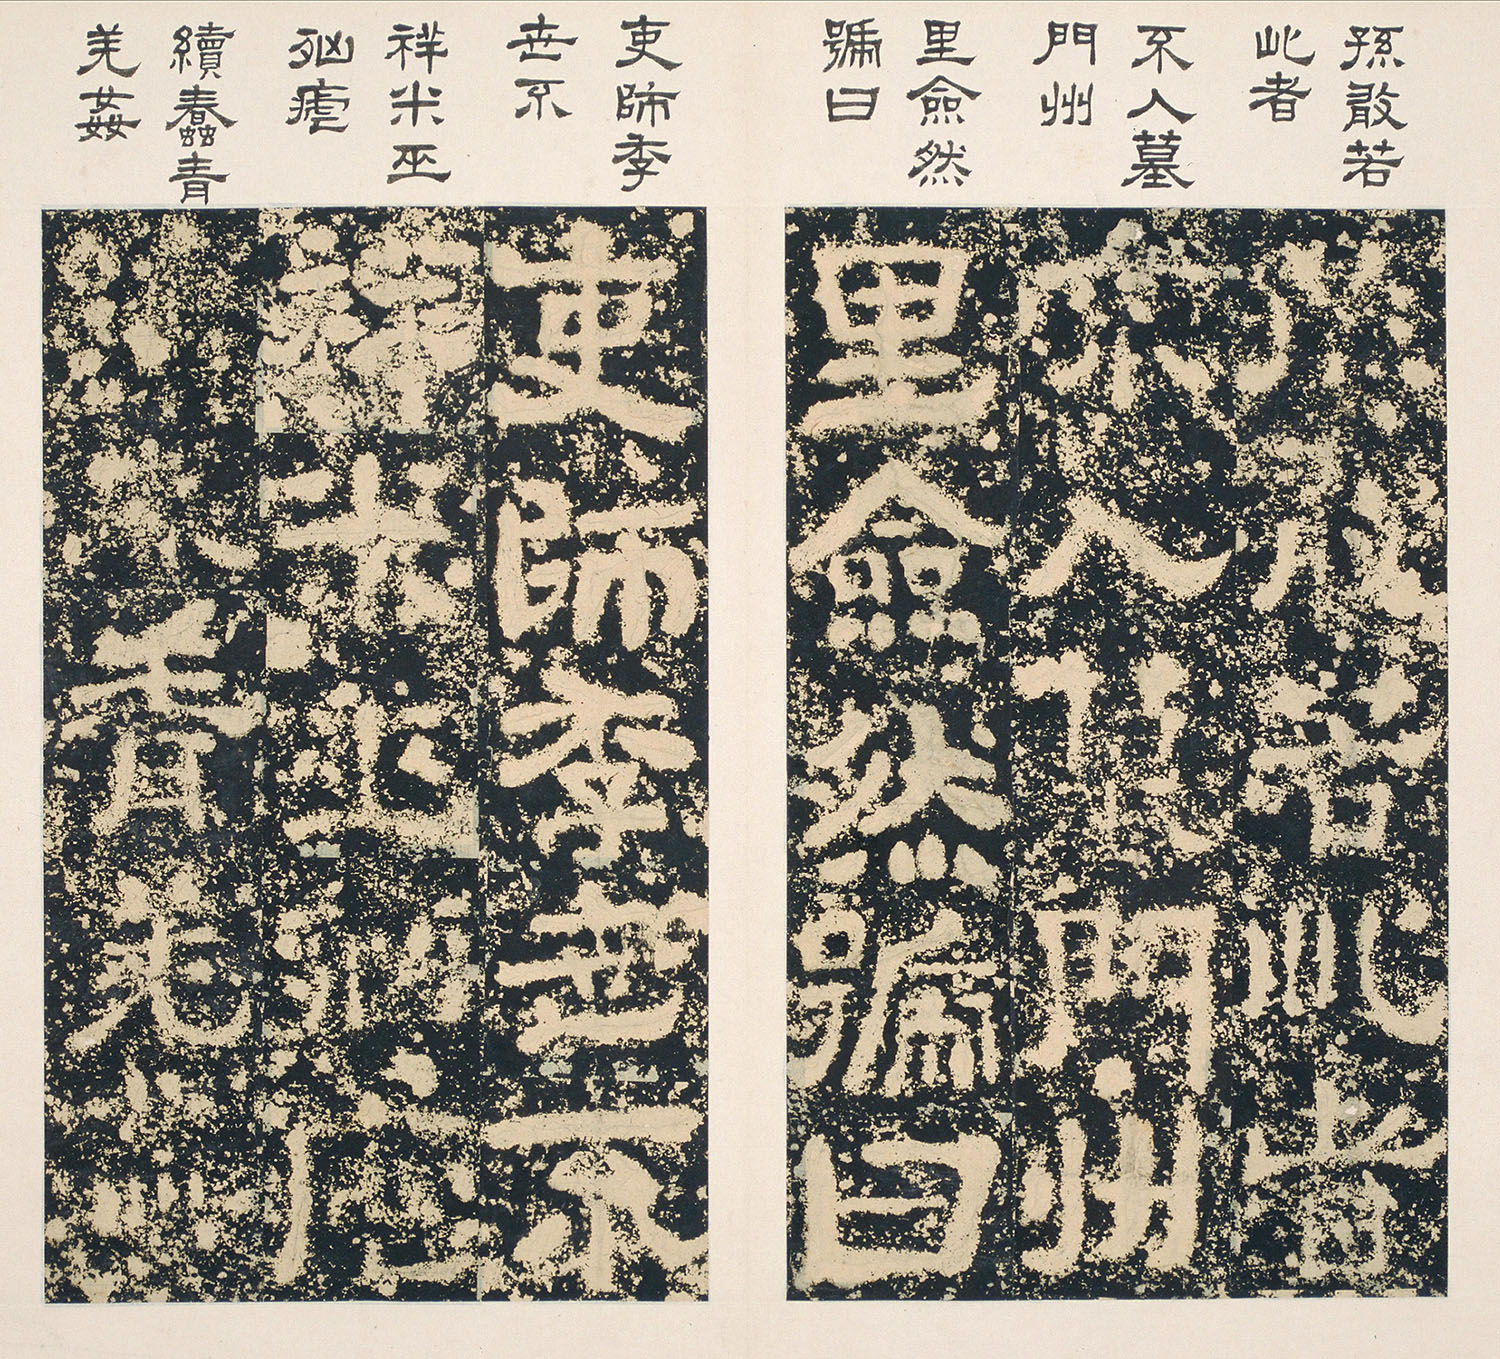 孫敢若
此者
不入墓
門州
里僉然
號曰
吏師季
世不
祥米巫
瘧
續蠢青
羌姦
孫敢若此者
不入墓門州
里僉然號曰
吏師季世不
祥米巫
青羌